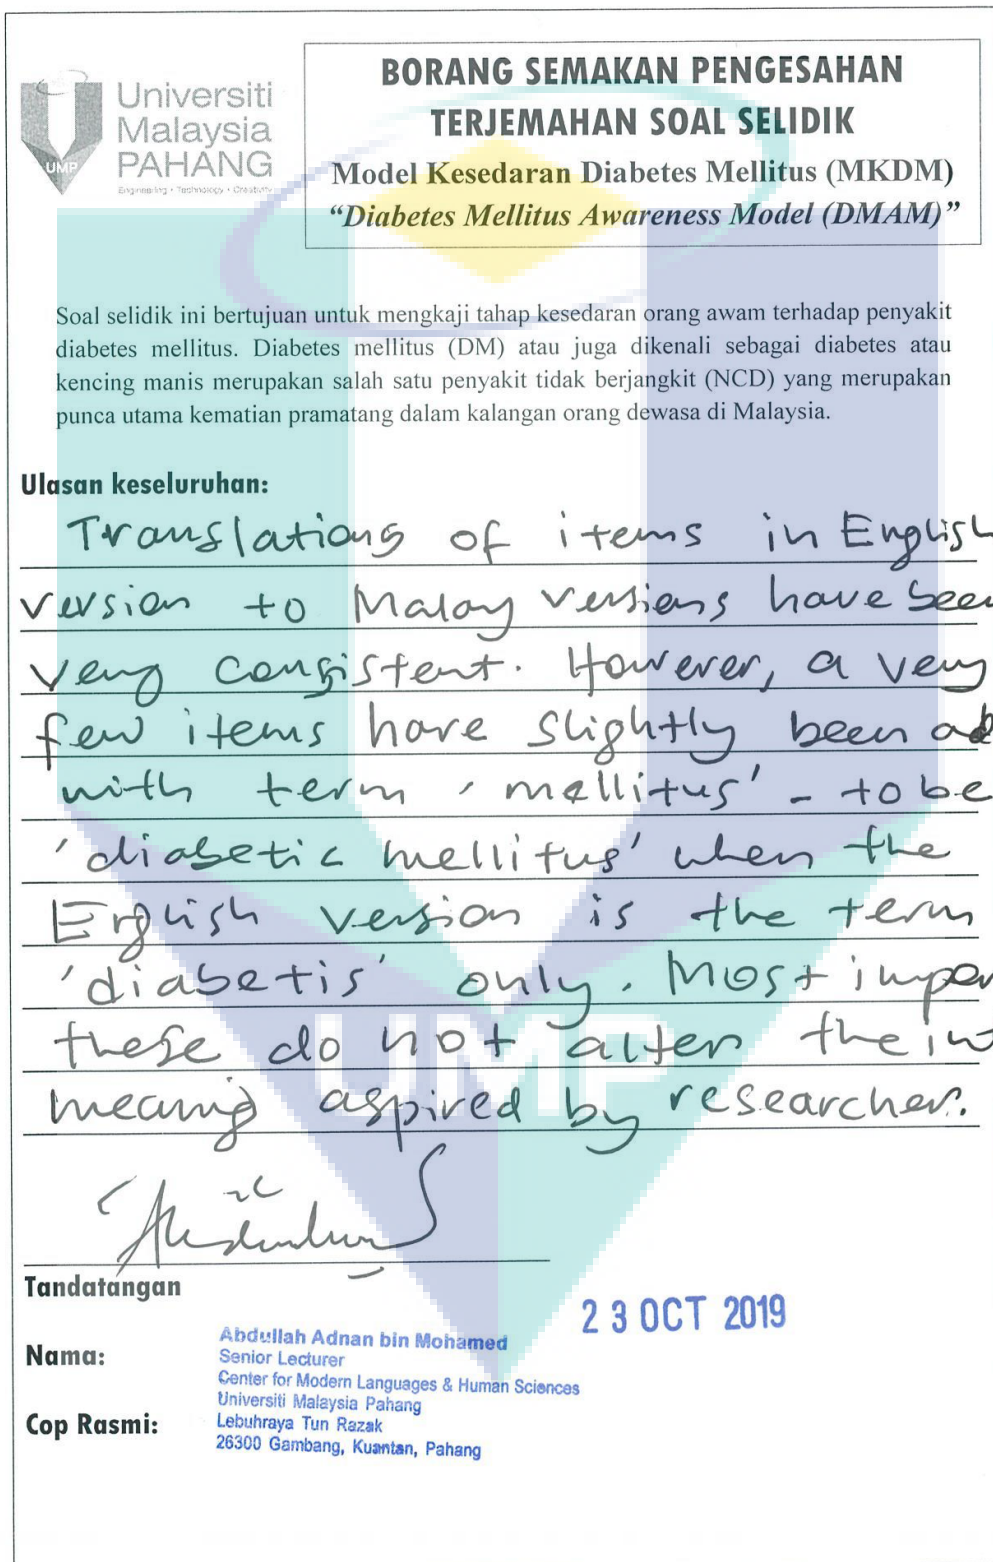 Universiti
Malaysia
PAHANG
Engineering • Technology • Creativity
UMP
BORANG SEMAKAN PENGESAHAN
TERJEMAHAN SOAL SELIDIK
Model Kesedaran Diabetes Mellitus (MKDM)
“Diabetes Mellitus Awareness Model (DMAM)”
Soal selidik ini bertujuan untuk mengkaji tahap kesedaran orang awam terhadap penyakit
diabetes mellitus. Diabetes mellitus (DM) atau juga dikenali sebagai diabetes atau
kencing manis merupakan salah satu penyakit tidak berjangkit (NCD) yang merupakan
punca utama kematian pramatang dalam kalangan orang dewasa di Malaysia.
Ulasan keseluruhan:
Translations of items in English
version to Malay versions have been
very consistent. However, a very
few items have slightly been ad
with term 'mellitus' - to be
'diabetic mellitus' when the
English version is the term
'diabetis' only. Most impor
these do not alter the in
meaning aspired by researcher.
UMP
Tandatangan
23 OCT 2019
Nama:
Abdullah Adnan bin Mohamed
Senior Lecturer
Center for Modern Languages & Human Sciences
Universiti Malaysia Pahang
Cop Rasmi:
Lebuhraya Tun Razak
26300 Gambang, Kuantan, Pahang